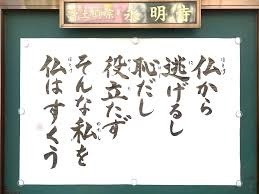 永明寺
仏から
逃げるし
恥だし
役立たず
そんな私を
仏はすくう